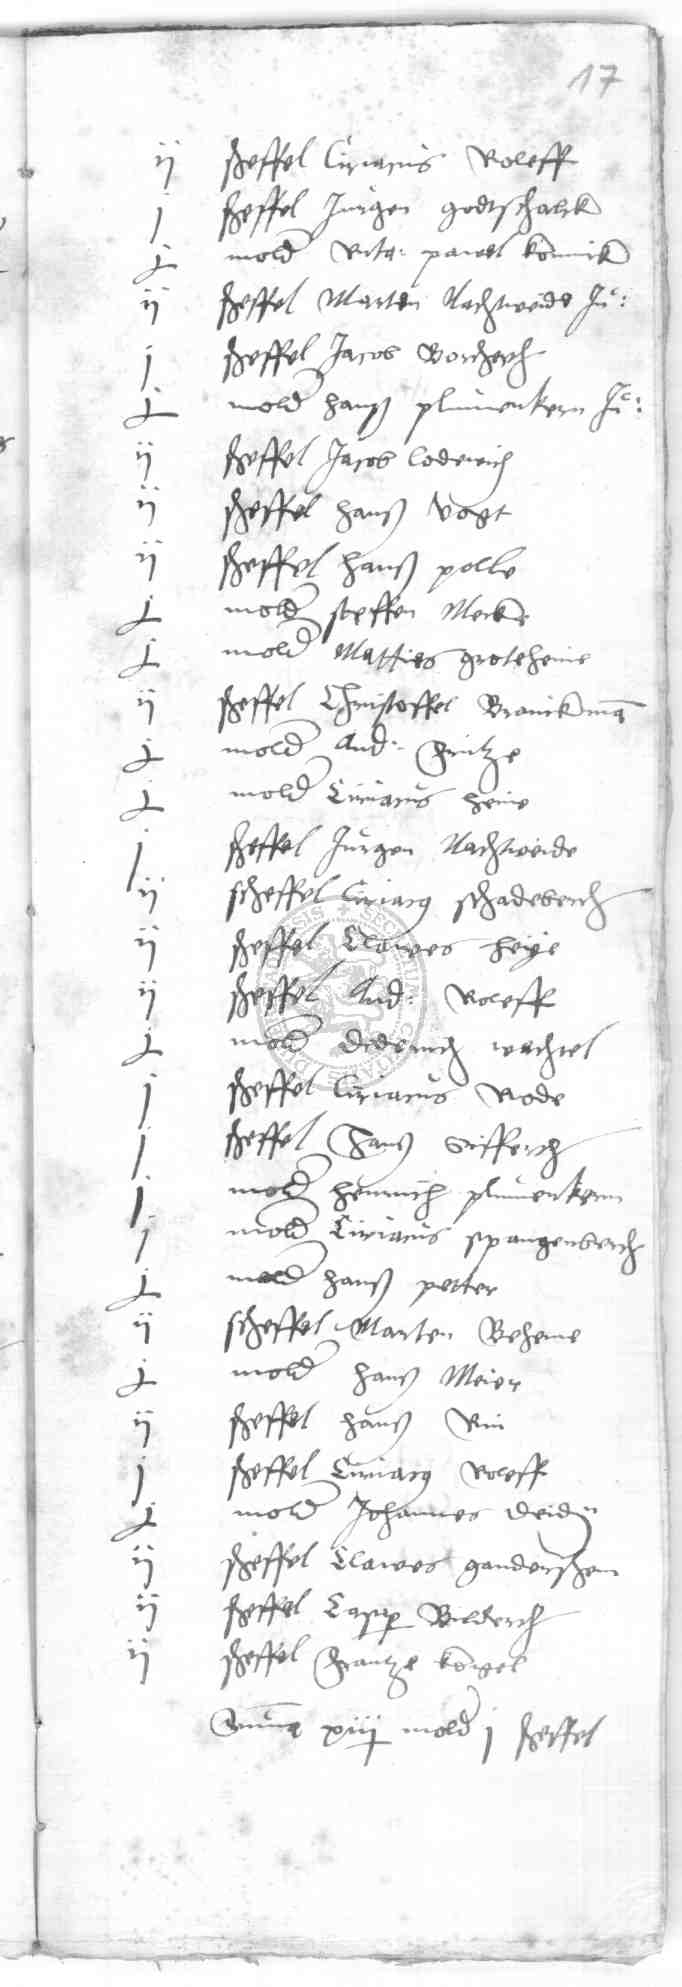 17
ij scheffel Ciriacus Roleff
j scheffel Jurgen godtschalck
j mold pawel konnick
ij scheffel Marten Nachtweide Ju:
j scheffel Jacob Borcherch
j mold hanß plumenkern Ju:
ij scheffel Jacob lodewich
ij scheffel hanß vogt
ij scheffel hanß polle
j mold steffen Mecke
j mold Matties groteheine
ij scheffel Christoffel Branckman
j mold And: fritze
j mold Ciriacus heine
j scheffel Jurgen Nachtweide
ij scheffel Ciriacus schadeberch
ij scheffel Clawes heise
ij scheffel And: Roleff
j mold Diderich wachtel
j scheffel Ciriacus Rode
j scheffel Hans sifferch
j mold henrich plumenkern
j mold Ciriacus spangenberch
j mold hanß petter
ij scheffel Marten Beheme
j mold hanß Meier
ij scheffel hanß Rin
j scheffel Ciriacus Roleff
j mold Johannes
ij scheffel Clawes ganderßem
ij scheffel Casper Bilderch
ij scheffel frantze kongel
Summa xiij mold j scheffel
SECRETUM CIVITATIS